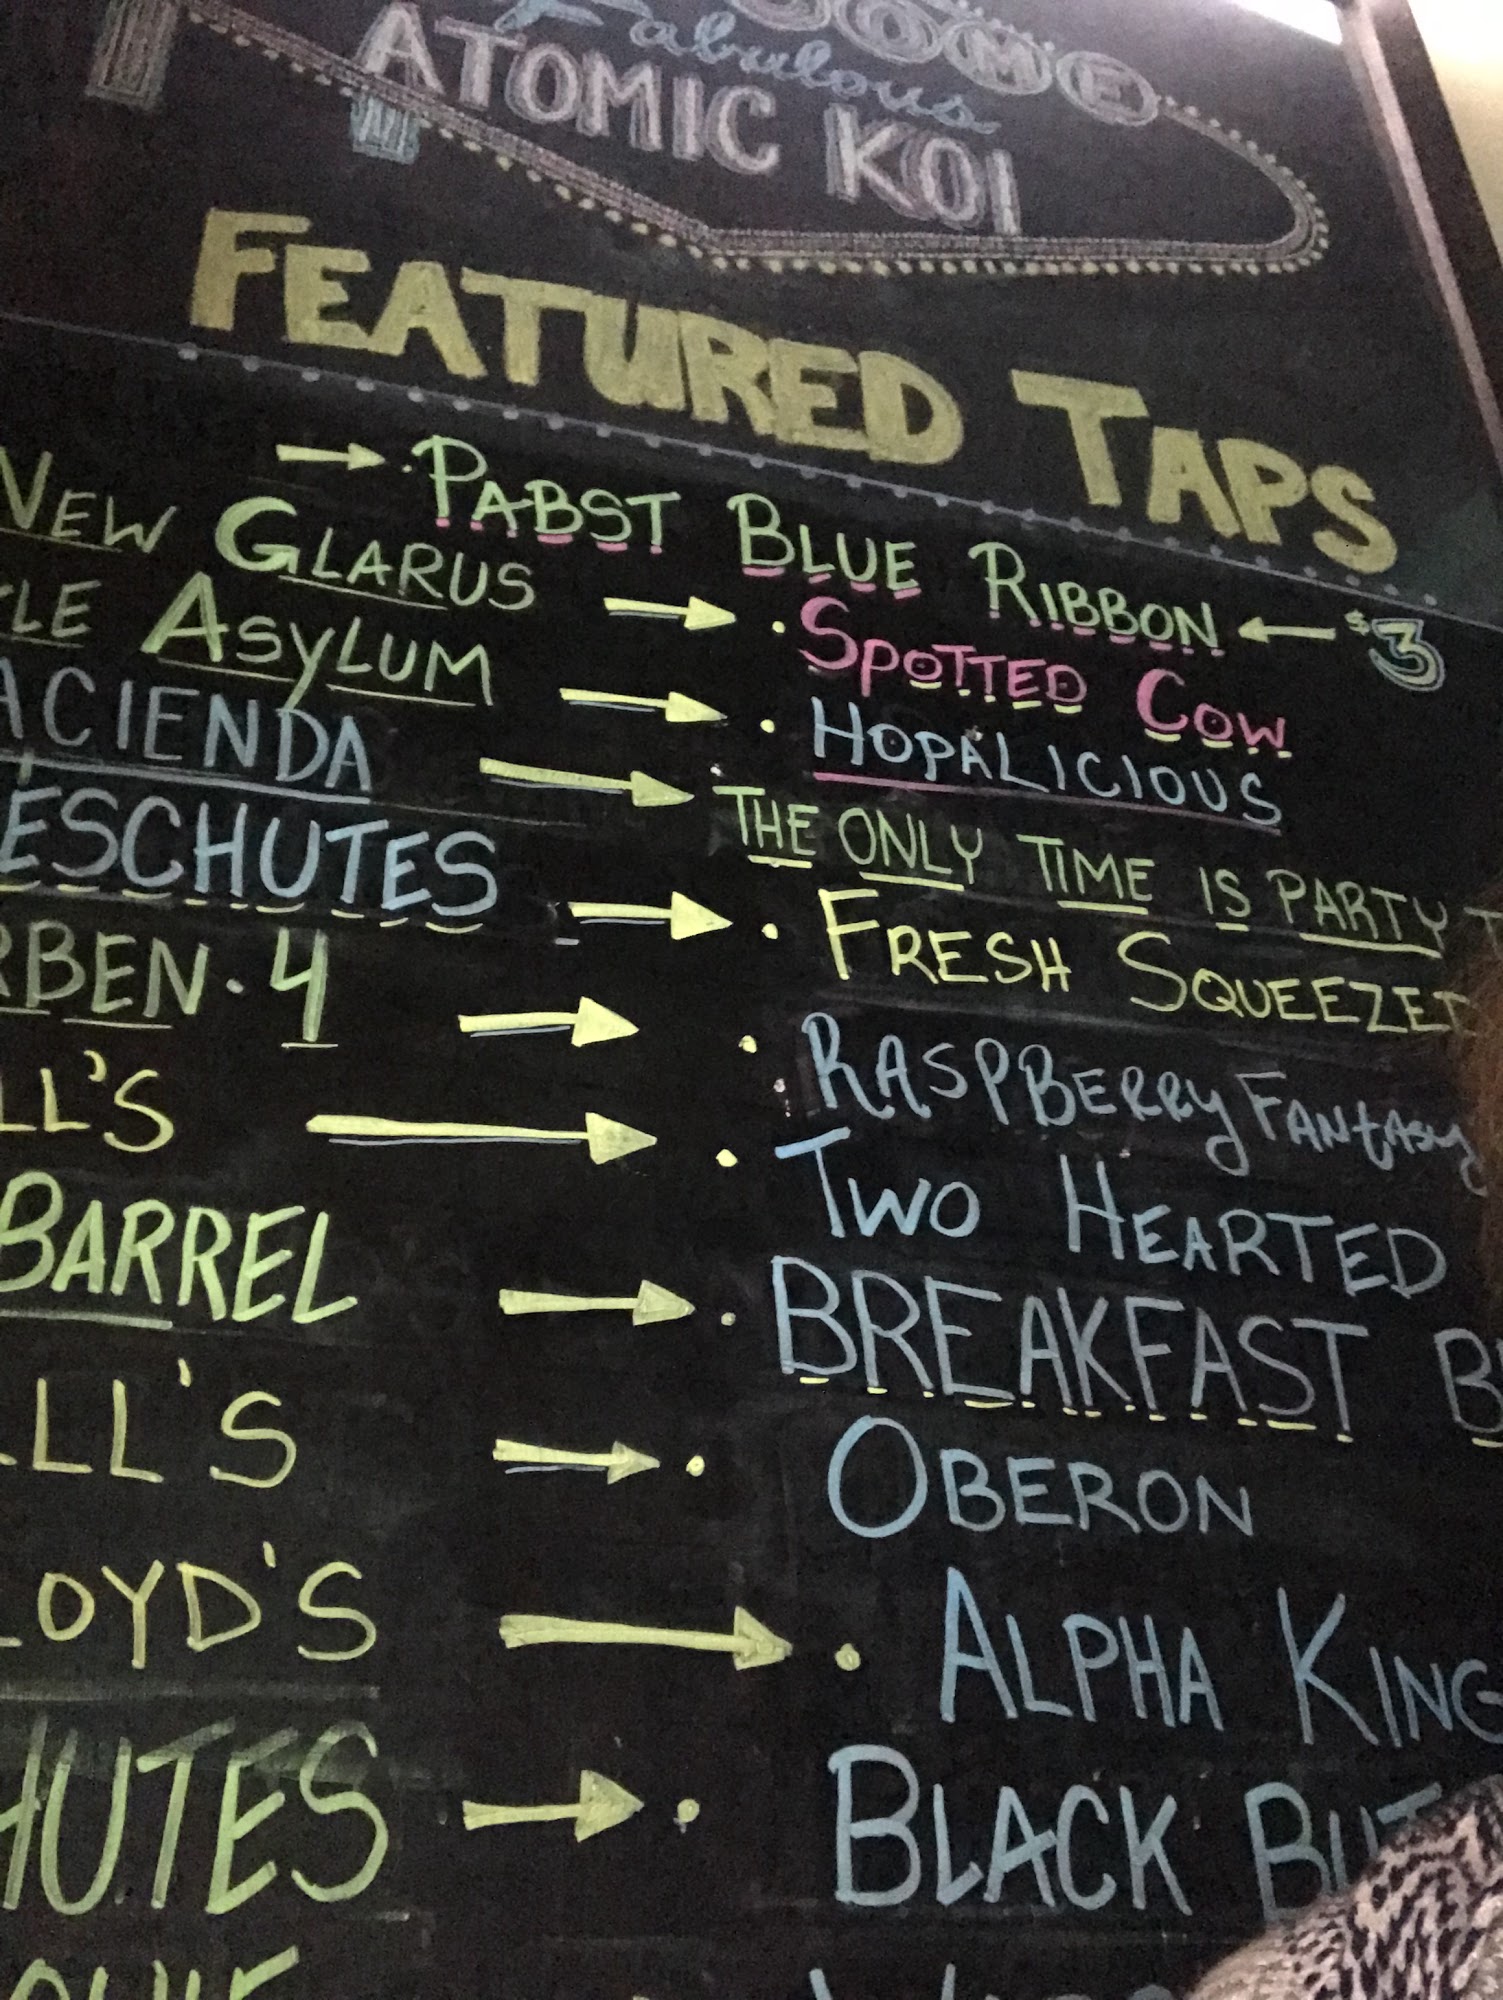 OME
Fabulous
ATOMIC KOI
FEATURED TAPS
PABST BLUE RIBBON $3
NEW GLARUS SPOTTED COW
LE ASYLUM HOPALICIOUS
ACIENDA THE ONLY TIME IS PARTY T
ESCHUTES FRESH SQUEEZED
RBEN·4 RASPBERRY FANTASY
LL'S TWO HEARTED
BARREL BREAKFAST B
LL'S OBERON
LOYD'S ALPHA KING
HUTES BLACK BUT